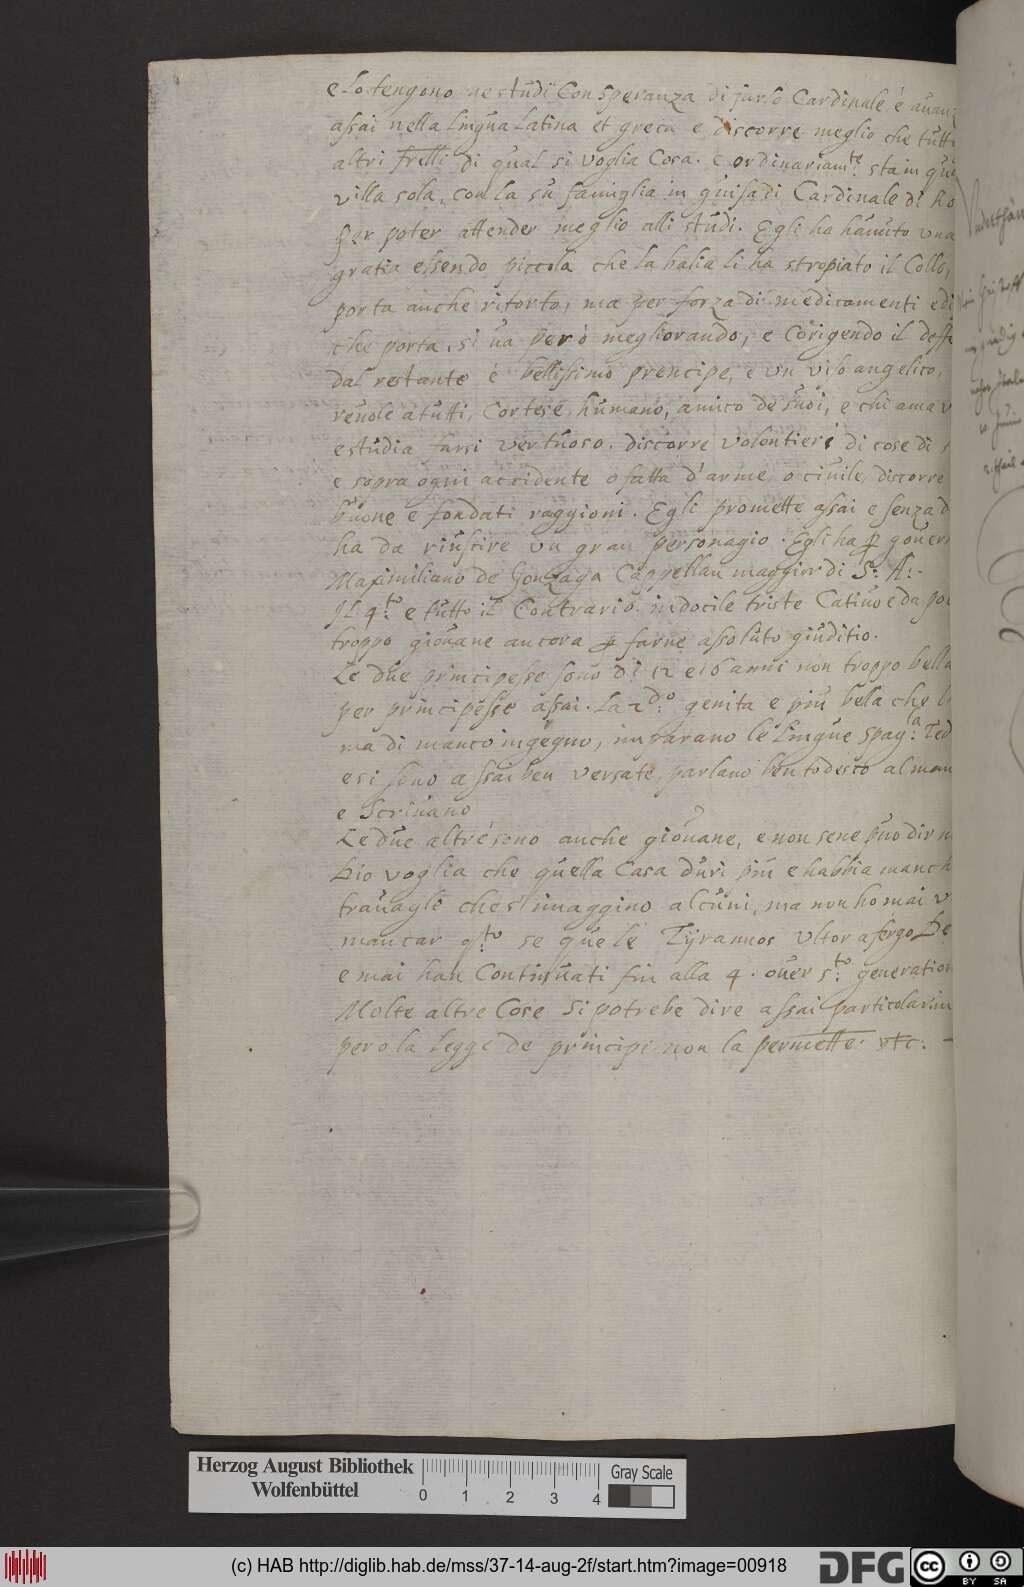 e lo tengono ne studÿ Con speranza di farlo Cardinale é auanz
assai nella lingua Latina et greca e discorre meglio che tutti
altri frelli di qual si voglia Cosa. e ordinariamte. sta in
villa sola, con la su famiglia in guisa di Cardinale di
per poter attender meglio alli studi. Egli ha hauuto vna
gratia essendo piccola che la balia li ha stropiato il Collo,
porta anche ritorto, ma per forza di medicamenti e di
che porta, si ua peró megliorando, e Corigendo il
dal restante é bellissimo prencipe, é vn viso angelico,
reuole a tutti, Cortese, humano, amico de suoi, e chi ama
e studia farsi vertuoso. discorre volontieri di cose di
e sopra ogni accidente o fatta d'arme, o ciuile, discorre
buone e fondati raggioni. Egli promette assai e senza
ha da riuscire vn gran personagio. Egli ha p
Maximiliano de Gonzaga Cappellan maggior di S: A:
Il 4:to e tutto il Contrario. indocile triste Catiuo e da
troppo giouane ancora p farne assoluto giuditio.
Le due principesse sono di 12 e 16 anni non troppo bella
per principesse assai. La 2do: genita e piu bella che
ma di manco ingegno, imparano le lingue spag:la Ted
e si sono assai ben versate, parlano ben todesco al man
e Scriuano
Le due altre sono anche giouane, e non sene puo dir
Dio voglia che quella Casa duri piu e habbia
trauagli che s'imaggino alcuni, ma non ho mai
mancar q:to se que le Tÿrannos Vltor a tergo
e mai han Continuati fin alla 4. ouer 5:to generation
Molte altre Cose si potrebe dire assai
pero la legge de principi non la permette. etc: -
Herzog August Bibliothek
Wolfenbüttel
0 1 2 3 4
Gray Scale
(c) HAB http://diglib.hab.de/mss/37-14-aug-2f/start.htm?image=00918
DFG
cc
BY SA